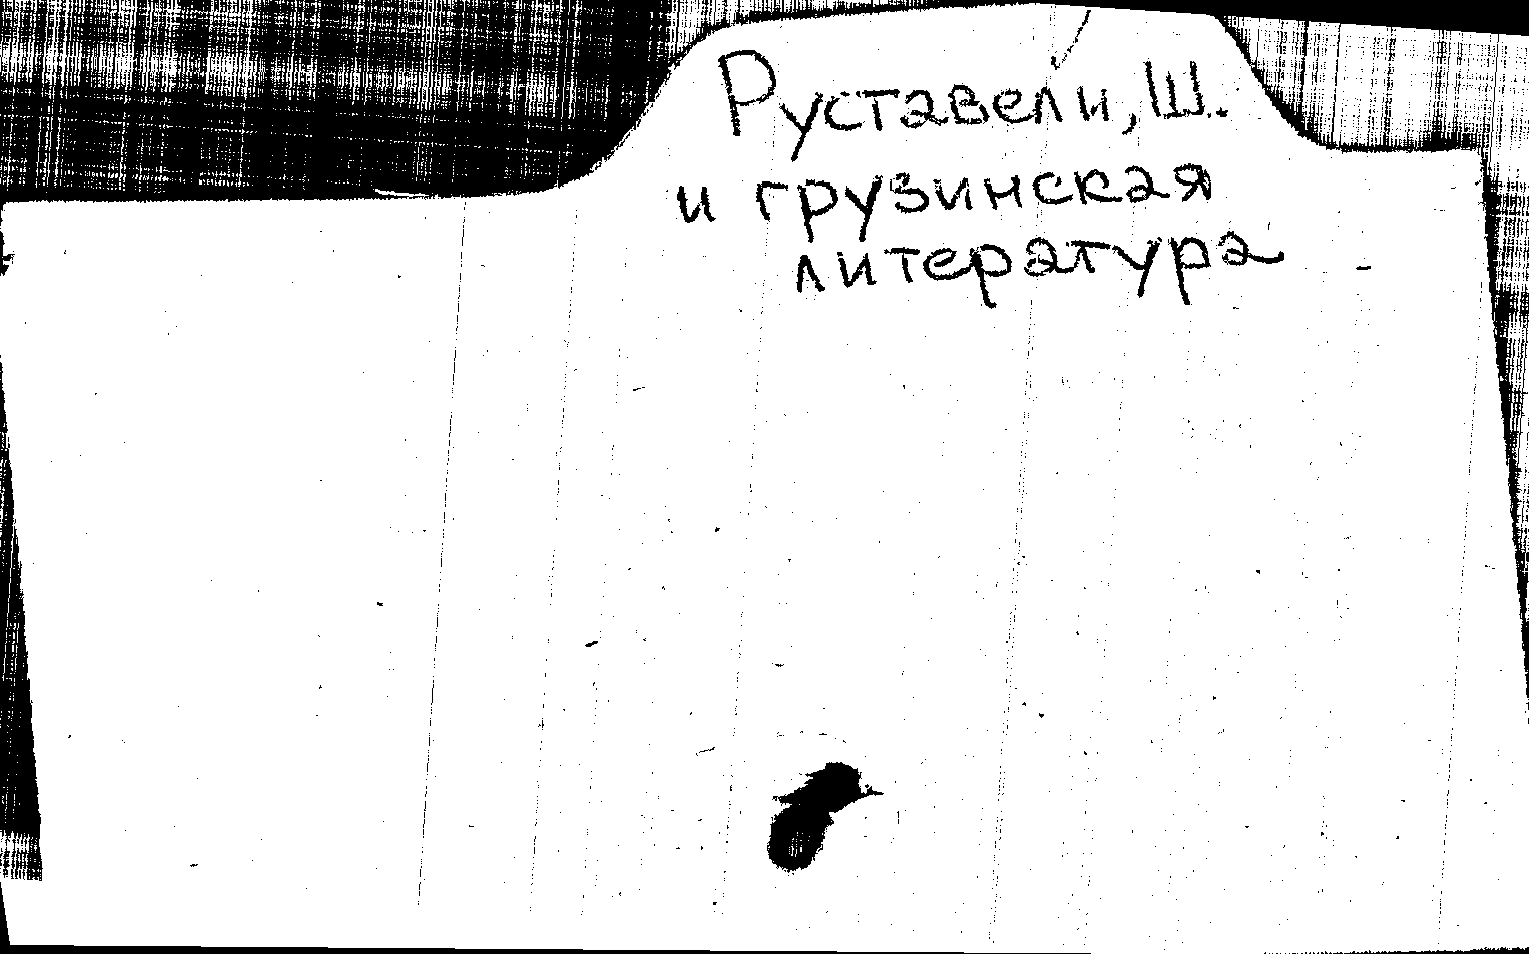 Руставели, Ш.
и грузинская
литература